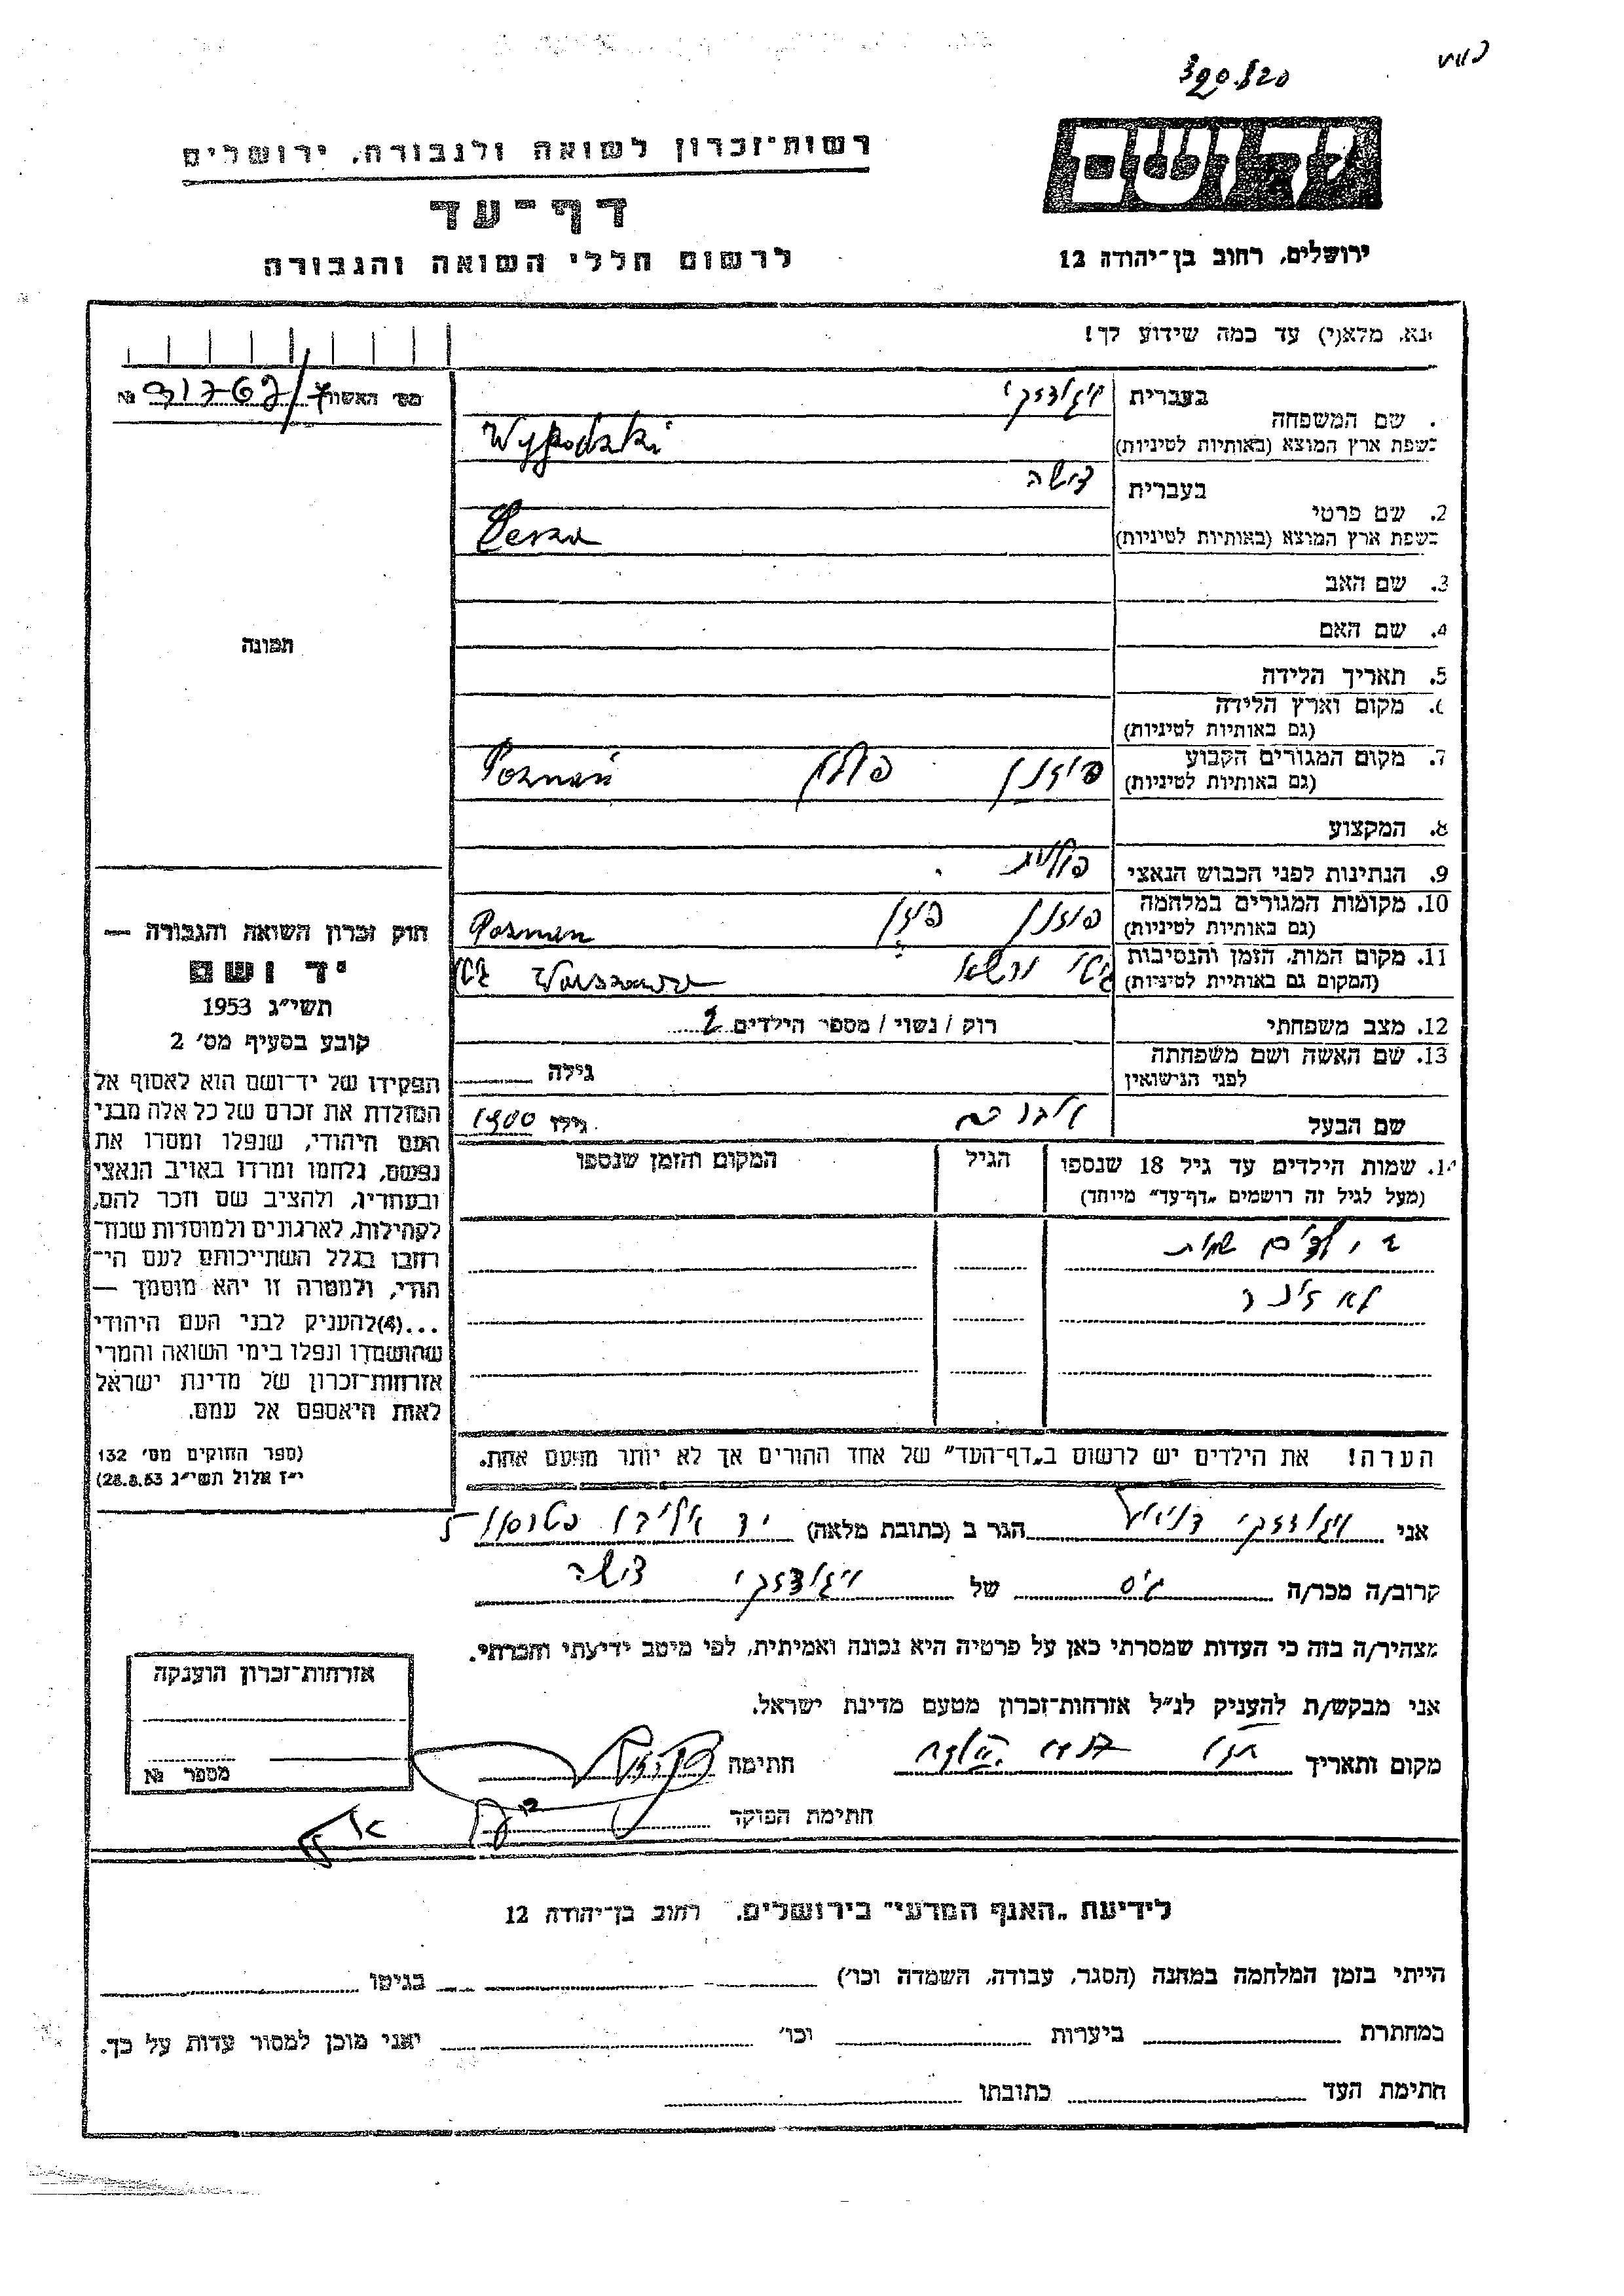 רשות־זכרון לשואה ולגבורה, ירושלים
דף־עד
לרשום חללי השואה והגבורה
יד ושם
ירושלים, רחוב בן־יהודה 12
נא, מלא(י) עד כמה שידוע לך!
מס׳ האשור №
שם המשפחה
בעברית ויגודזקי
בשפת ארץ המוצא (באותיות לטיניות) Wygodzki
2. שם פרטי
בעברית
בשפת ארץ המוצא (באותיות לטיניות)
3. שם האב
4. שם האם
5. תאריך הלידה
מקום וארץ הלידה
(גם באותיות לטיניות)
7. מקום המגורים הקבוע פוזנן פולין Poznań
(גם באותיות לטיניות)
8. המקצוע
9. הנתינות לפני הכבוש הנאצי פולנית
10. מקומות המגורים במלחמה פוזנן פולין Poznan
(גם באותיות לטיניות)
11. מקום המות, הזמן והנסיבות גיטו ורשא Warszawa
(המקום גם באותיית לטיניות)
12. מצב משפחתי רוק / נשוי / מספר הילדים 2
13. שם האשה ושם משפחתה גילה
לפני הנישואין
שם הבעל גילו 1900
שמות הילדים עד גיל 18 שנספו הגיל המקום והזמן שנספו
(מעל לגיל זה רושמים „דף־עד״ מיוחד)
2 ילדים שמות
לא זוכר
הערה! את הילדים יש לרשום ב„דף־העד״ של אחד ההורים אך לא יותר מפעם אחת.
תמונה
חוק זכרון השואה והגבורה —
יד ושם
תשי״ג 1953
קובע בסעיף מס׳ 2
תפקידו של יד־ושם הוא לאסוף אל
המולדת את זכרם של כל אלה מבני
העם היהודי, שנפלו ומסרו את
נפשם, נלחמו ומרדו באויב הנאצי
ובעוזריו, ולהציב שם וזכר להם,
לקהילות, לארגונים ולמוסדות שנח־
רבו בגלל השתייכותם לעם הי־
הודי, ולמטרה זו יהא מוסמך —
...(4)להעניק לבני העם היהודי
שהושמדו ונפלו בימי השואה והמרי
אזרחות־זכרון של מדינת ישראל
לאות היאספם אל עמם.
(ספר החוקים מס׳ 132
י״ז אלול תשי״ג 28.8.53)
אני ויגודזקי דניאל הגר ב (כתובת מלאה) יד אליהו
קרוב/ה מכר/ה גיס של ויגודזקי
מצהיר/ה בזה כי העדות שמסרתי כאן על פרטיה היא נכונה ואמיתית, לפי מיטב ידיעתי והכרתי.
אני מבקש/ת להעניק לנ״ל אזרחות־זכרון מטעם מדינת ישראל.
מקום ותאריך חתימה
חתימת הפוקד
אזרחות־זכרון הוענקה
מספר №
לידיעת „האגף המדעי״ בירושלים, רחוב בן־יהודה 12
הייתי בזמן המלחמה במחנה (הסגר, עבודה, השמדה וכו׳) בגיטו
במחתרת ביערות וכו׳ ואני מוכן למסור עדות על כך.
חתימת העד כתובתו